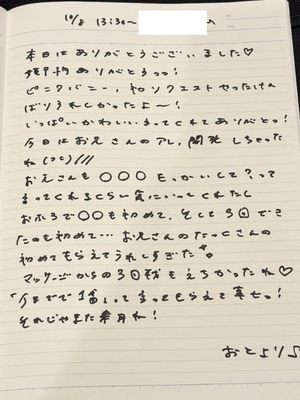 10/8 13:30～
本日はありがとうございました♡
予約ありがとうっっ!
ピンクバニー、初リクエストやったけん
ばりうれしかったよ～!
いっぱいかわいいってくれてありがとっ!
今日はお兄さんのアレ、開発しちゃった
ね(つc)///
お兄さんも〇〇〇も、かいして?って
言ってくれるくらい気にいってくれたし
おふろで〇〇も初めて、そして3回できた
のも初めて…お兄さんのたっくさんの
初めてもらえてうれしすぎた
マッサージからの3回戦もえちかったね♡
「今までで1番」って言ってもらえて幸せっ!
それじゃまた来月ね!
おとより♪